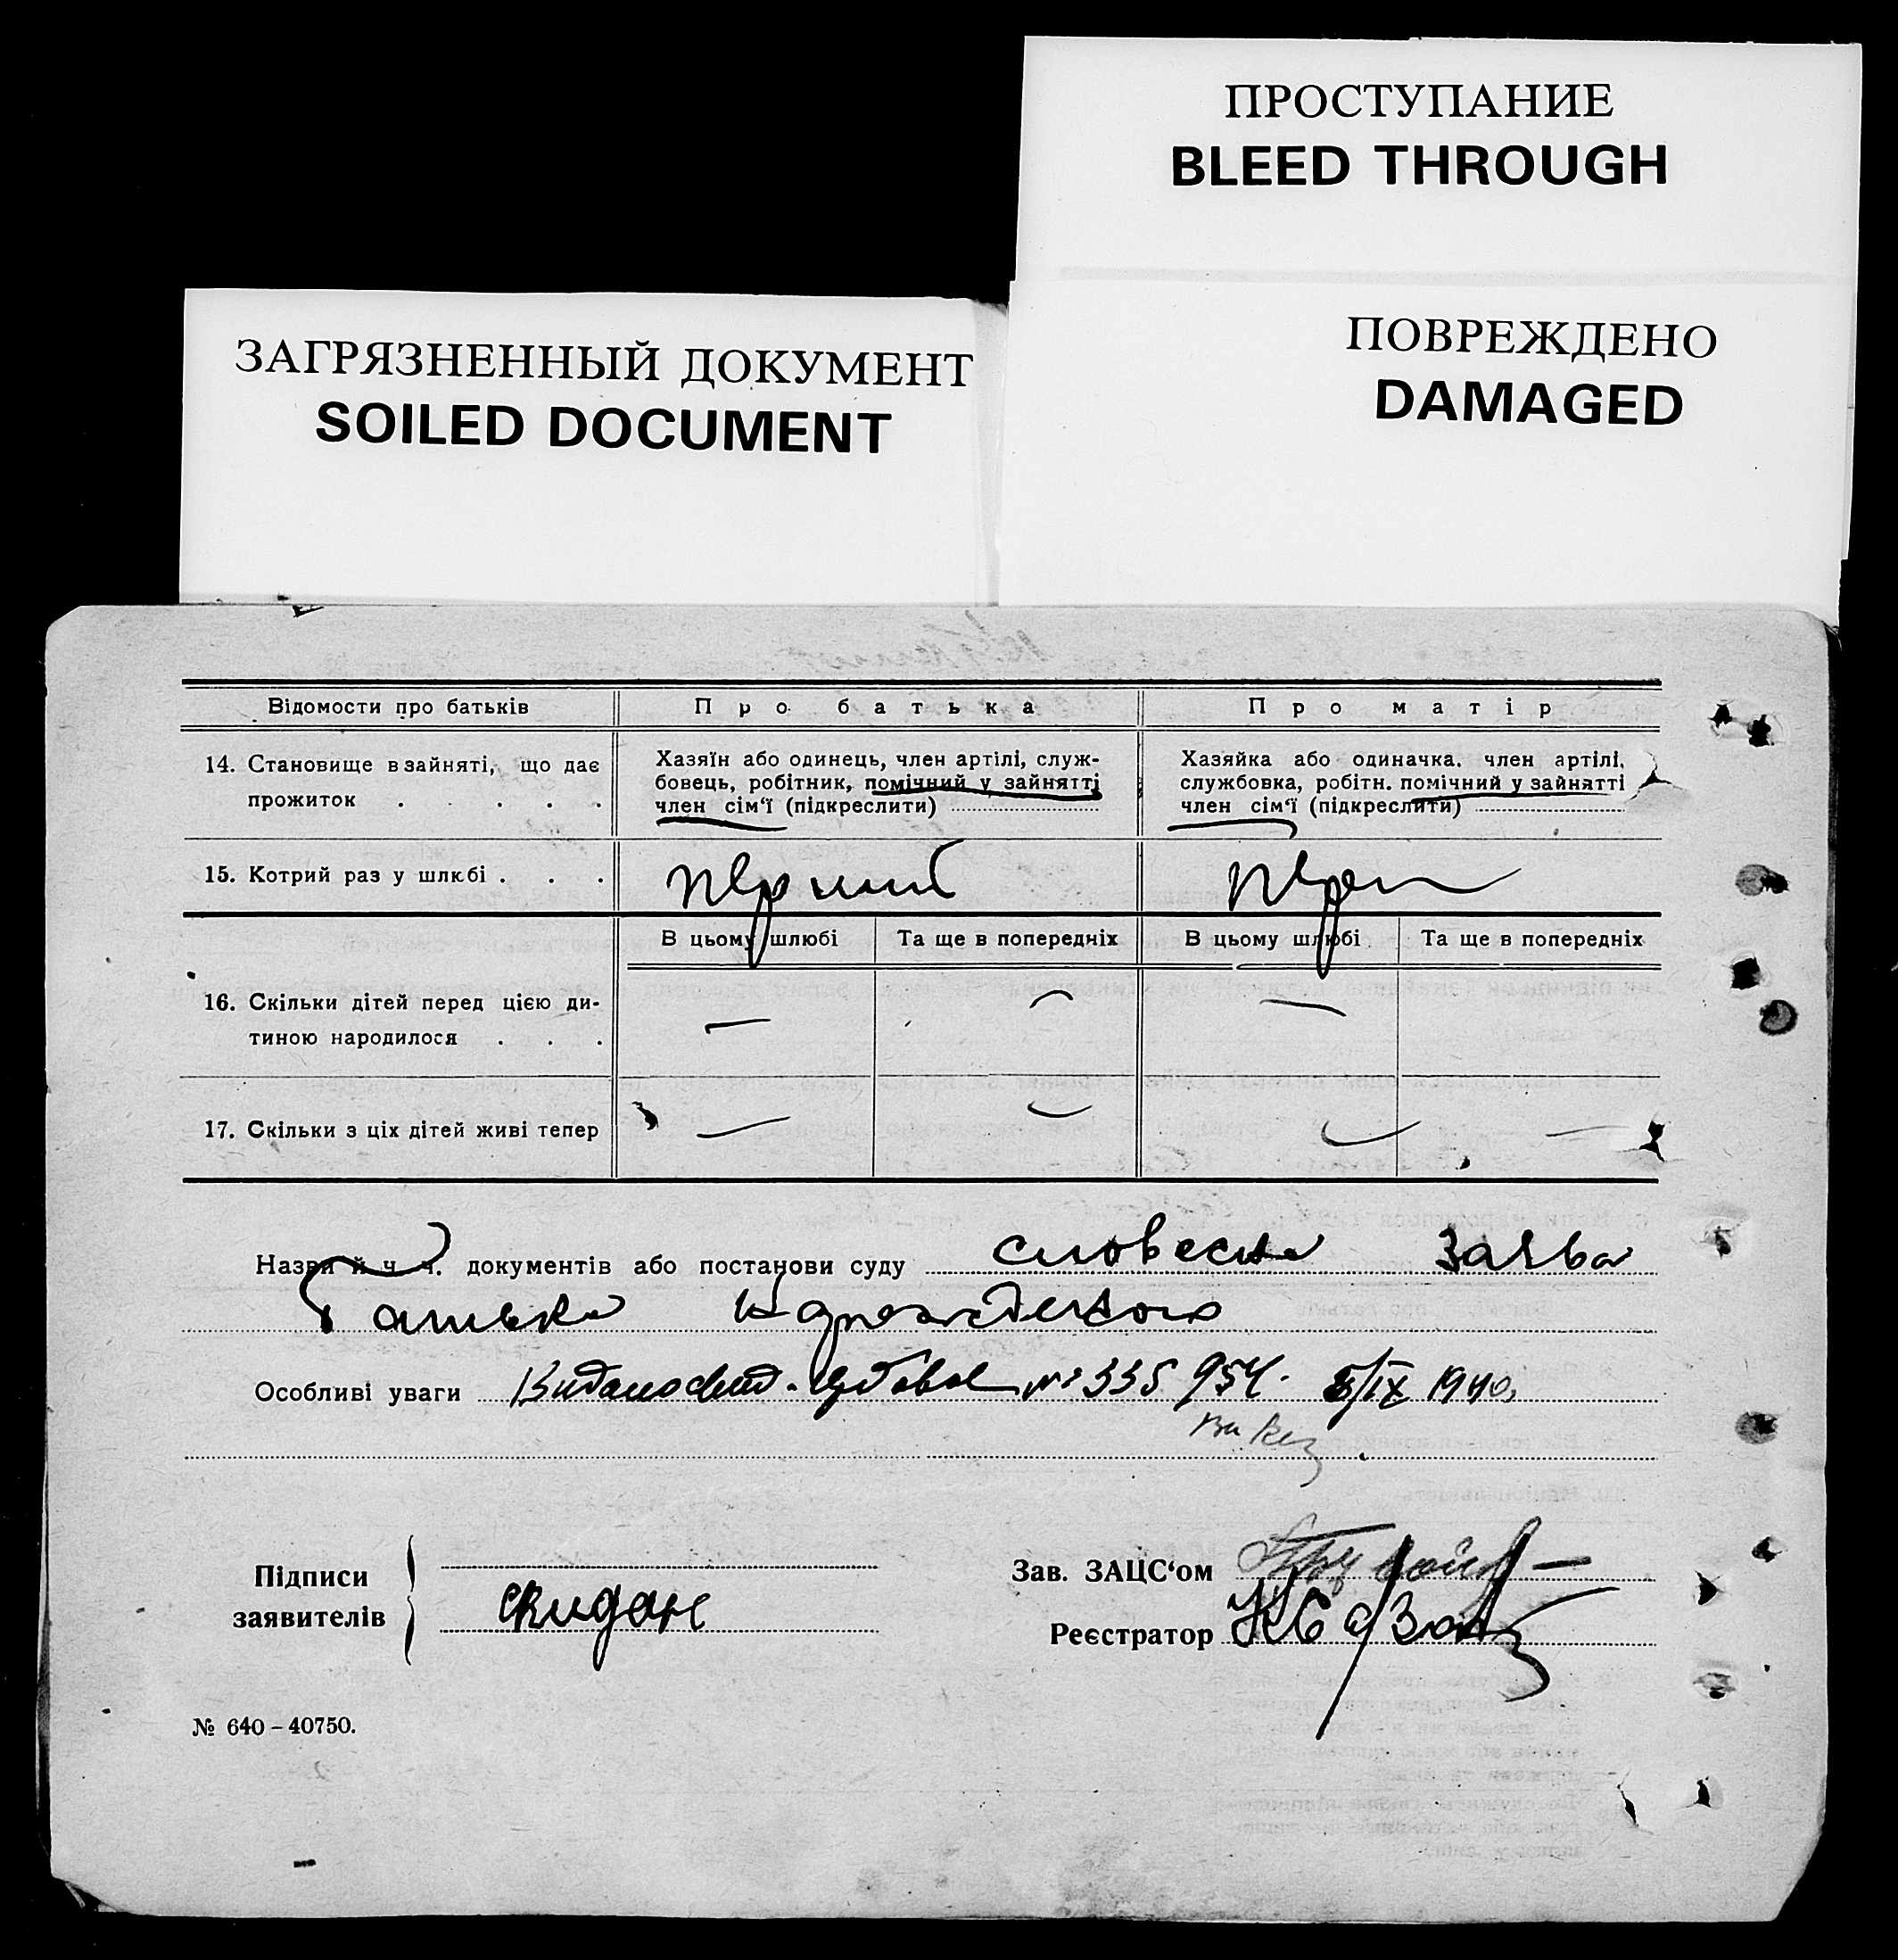 ПРОСТУПАНИЕ
BLEED THROUGH
ПОВРЕЖДЕНО
DAMAGED
ЗАГРЯЗНЕННЫЙ ДОКУМЕНТ
SOILED DOCUMENT
Відомости про батьків
Про батька
Про матір
14. Становище в зайняті, що дає
прожиток . . . . .
Хазяїн або одинець, член артілі, служ-
бовець, робітник, помічний у зайнятті
член сім‘ї (підкреслити)
Хазяйка або одиначка, член артілі,
службовка, робітн. помічний у зайнятті
член сім‘ї (підкреслити)
15. Котрий раз у шлюбі . . .
В цьому шлюбі
Та ще в попередніх
В цьому шлюбі
Та ще в попередніх
16. Скільки дітей перед цією ди-
тиною народилося . . .
— — —
17. Скільки з ціх дітей живі тепер
— — — —
Назви й ч. ч. документів або постанови суду словесна заява
батька
Особливі уваги № 335954. 1940
Підписи
заявителів
Скидан
Зав. ЗАЦС‘ом
Реєстратор
№ 640 – 40750.